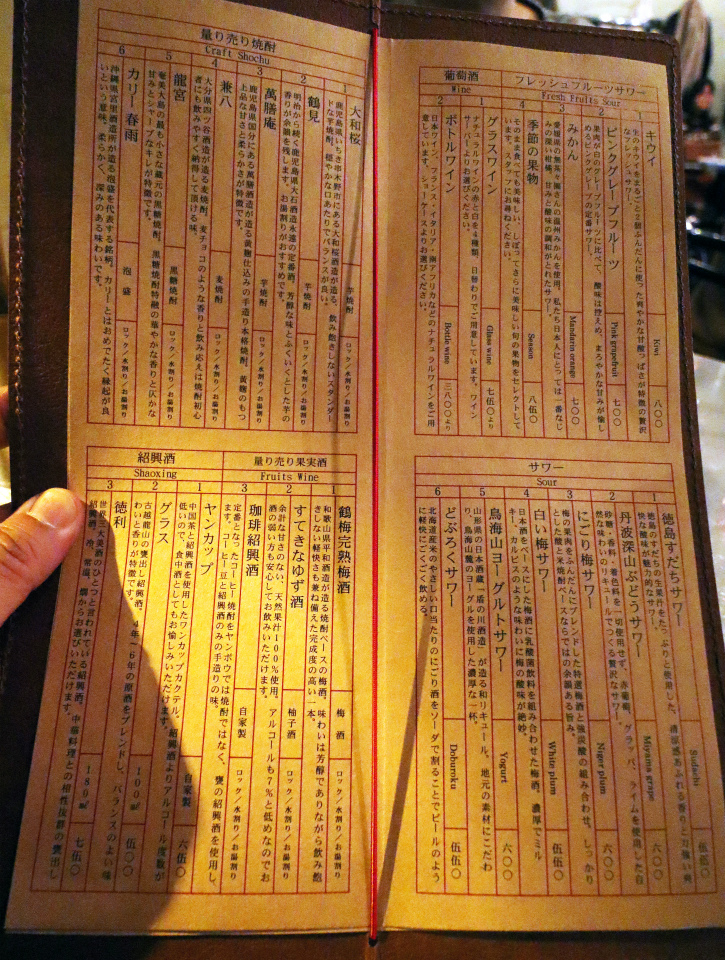 フレッシュフルーツサワー
Fresh Fruits Sour
1
キウイ
Kiwi
八〇〇
生のキウイをまるごと2個ふんだんに使った爽やかな甘酸っぱさが特徴の贅沢
なフレッシュサワー。
2
ピンクグレープフルーツ
Pink grapefruit
七〇〇
果肉が白のグレープフルーツに比べて、酸味は控えめ、まろやかな甘みが愉し
めるピンクグレープの定番サワー。
3
みかん
Mandarin orange
七〇〇
愛媛県の無茶々園さんの温州みかんを使用。私たち日本人にとっては一番なじ
み深い柑橘で、甘みと酸味の調和がとれたサワー。
4
季節の果物
Season
八伍〇
そのまま食べても美味しい、しぼってさらに美味しい旬の果物をセレクトして
います。スタッフにお尋ねください。
葡萄酒
Wine
1
グラスワイン
Glass wine
七伍〇より
ナチュラルワインの赤と白を4種類、日替わりでご用意しています。ワイン
サーバーよりお選びください。
2
ボトルワイン
Bottle wine
三八〇〇より
日本ワイン、フランス・イタリア・南アフリカなどのナチュラルワインをご用
意しています。ショーケースよりお選びください。
サワー
Sour
1
徳島すだちサワー
Sudachi
伍伍〇
徳島のすだちの生果汁をたっぷりと使用した、清涼感あふれる香りと力強い爽
快な酸味が魅力的なサワー。
2
丹波深山ぶどうサワー
Miyama grape
六〇〇
砂糖・香料・着色料を一切使用せず、赤葡萄、グラッパ、ライムを使用した自
然な味わいのリキュールでつくる贅沢なサワー。
3
にごり梅サワー
Nigori plum
六〇〇
梅の果肉をふんだんにブレンドした特選梅酒と強炭酸の組み合わせ。しっかり
とした酸と米焼酎ベースならではの余韻ある旨み。
4
白い梅サワー
White plum
伍伍〇
日本酒をベースにした梅酒に乳酸菌飲料を組み合わせた梅酒。濃厚でミル
キー、カルピスのような味わいに梅の酸味が絶妙。
5
鳥海山ヨーグルトサワー
Yogurt
六〇〇
山形県の日本酒蔵、楯の川酒造が造る和リキュール。地元の素材にこだわ
り、鳥海山麓のヨーグルを使用した濃厚な一杯。
6
どぶろくサワー
Doburoku
伍伍〇
北海道産米のやさしい口当たりのにごり酒をソーダで割ることでビールのよう
に軽快にごくごく飲める。
量り売り焼酎
Craft Shochu
1
大和桜
芋焼酎
ロック／水割り／お湯割り
鹿児島県いちき串木野市にある大和桜酒造が造る、飲み飽きしないスタンダー
ドな芋焼酎。穏やかな口あたりでバランスが良い。
2
鶴見
芋焼酎
ロック／水割り／お湯割り
明治から続く鹿児島県大石酒造永遠の定番酒。芳醇な味とふくいくとした芋の
香りが余韻を残します。お湯割りがおすすめです。
3
萬膳庵
芋焼酎
ロック／水割り／お湯割り
鹿児島県国分にある萬膳酒造が造る黄麹仕込みの手造り本格焼酎。黄麹のもつ
上品な甘さと柔らかさが特徴です。
4
兼八
麦焼酎
ロック／水割り／お湯割り
大分県四ツ谷酒造が造る麦焼酎。麦チョコのような香りと飲み応えは焼酎初心
者にも飲みやすく納得して頂ける味。
5
龍宮
黒糖焼酎
ロック／水割り／お湯割り
奄美大島の最も小さな蔵元の黒糖焼酎。黒糖焼酎特徴の華やかな香りと仄かな
甘みとシャープなキレが特徴です。
6
カリー春雨
泡盛
ロック／水割り／お湯割り
沖縄県宮里酒造所が造る泡盛を代表する銘柄。カリーとはおめでたく縁起が良
いという意味。柔らかく、深みのある味わいです。
量り売り果実酒
Fruits Wine
1
鶴梅完熟梅酒
梅酒
ロック／水割り／お湯割り
和歌山県平和酒造が造る焼酎ベースの梅酒。味わいは芳醇でありながら飲み飽
きしない軽快さも兼ね備えた完成度の高い一本。
2
すてきなゆず酒
柚子酒
ロック／水割り／お湯割り
余計な甘さのない、天然果汁100％使用。アルコールも7％と低めなのでお
酒の弱い方も安心してお飲みいただけます。
3
珈琲紹興酒
自家製
ロック／水割り／お湯割り
定番となったコーヒー焼酎をヤンボウでは焼酎ではなく、甕の紹興酒を使用し
ます。コーヒー豆と紹興酒のみの手造りの味。
紹興酒
Shaoxing
1
ヤンカップ
自家製
六伍〇
中国茶と紹興酒を使用したワンカップカクテル。紹興酒よりアルコール度数が
低いので、食中酒としてもお愉しみいただけます。
2
グラス
100㎖
伍〇〇
古越龍山の甕出し紹興酒。4年〜6年の原酒をブレンドし、バランスのよい味
わいと香りが特徴です。
3
徳利
180㎖
七伍〇
世界三大美酒のひとつと言われている紹興酒。中華料理との相性抜群の甕出し
紹興酒。冷、常温、燗からお選びいただけます。